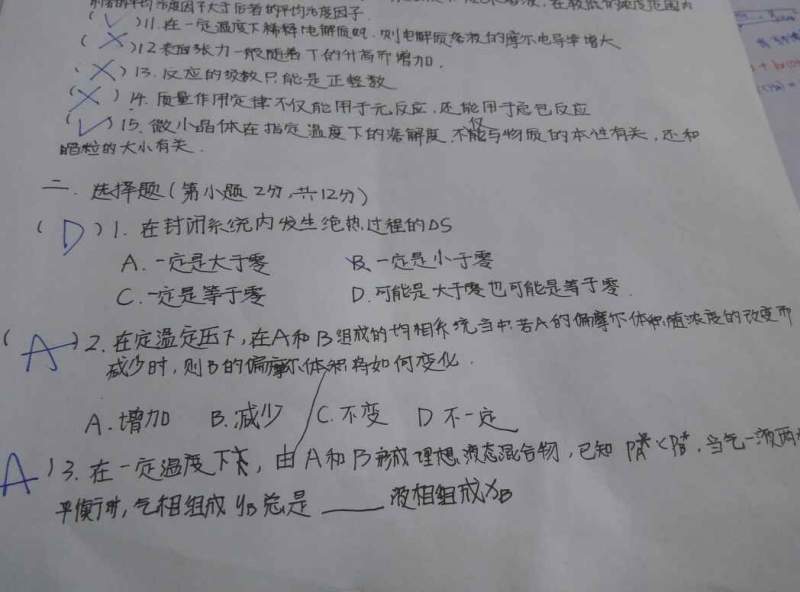 (√)11.在一定温度下稀释电解质时,则电解质溶液的摩尔电导率增大
(×)12表面张力一般随着T的升高而增加.
(×)13.反应的级数只能是正整数
(×)14.质量作用定律不仅能用于元反应,还能用于总包反应
(√)15.微小晶体在指定温度下的溶解度,不仅能与物质的本性有关,还和
晶粒的大小有关.
二.选择题(第小题2分,共12分)
(D)1.在封闭系统内发生绝热过程的DS
A.一定是大于零 B.一定是小于零
C.一定是等于零 D.可能是大于零也可能是等于零.
(A)2.在定温定压下,在A和B组成的均相系统当中,若A的偏摩尔体积随浓度的改变而
减少时,则B的偏摩尔体积将如何变化.
A.增加 B.减少 C.不变 D不一定
A)3.在一定温度下,由A和B形成理想液态混合物,已知PA*<PB*,当气-液两相
平衡时,气相组成yB总是____液相组成xB